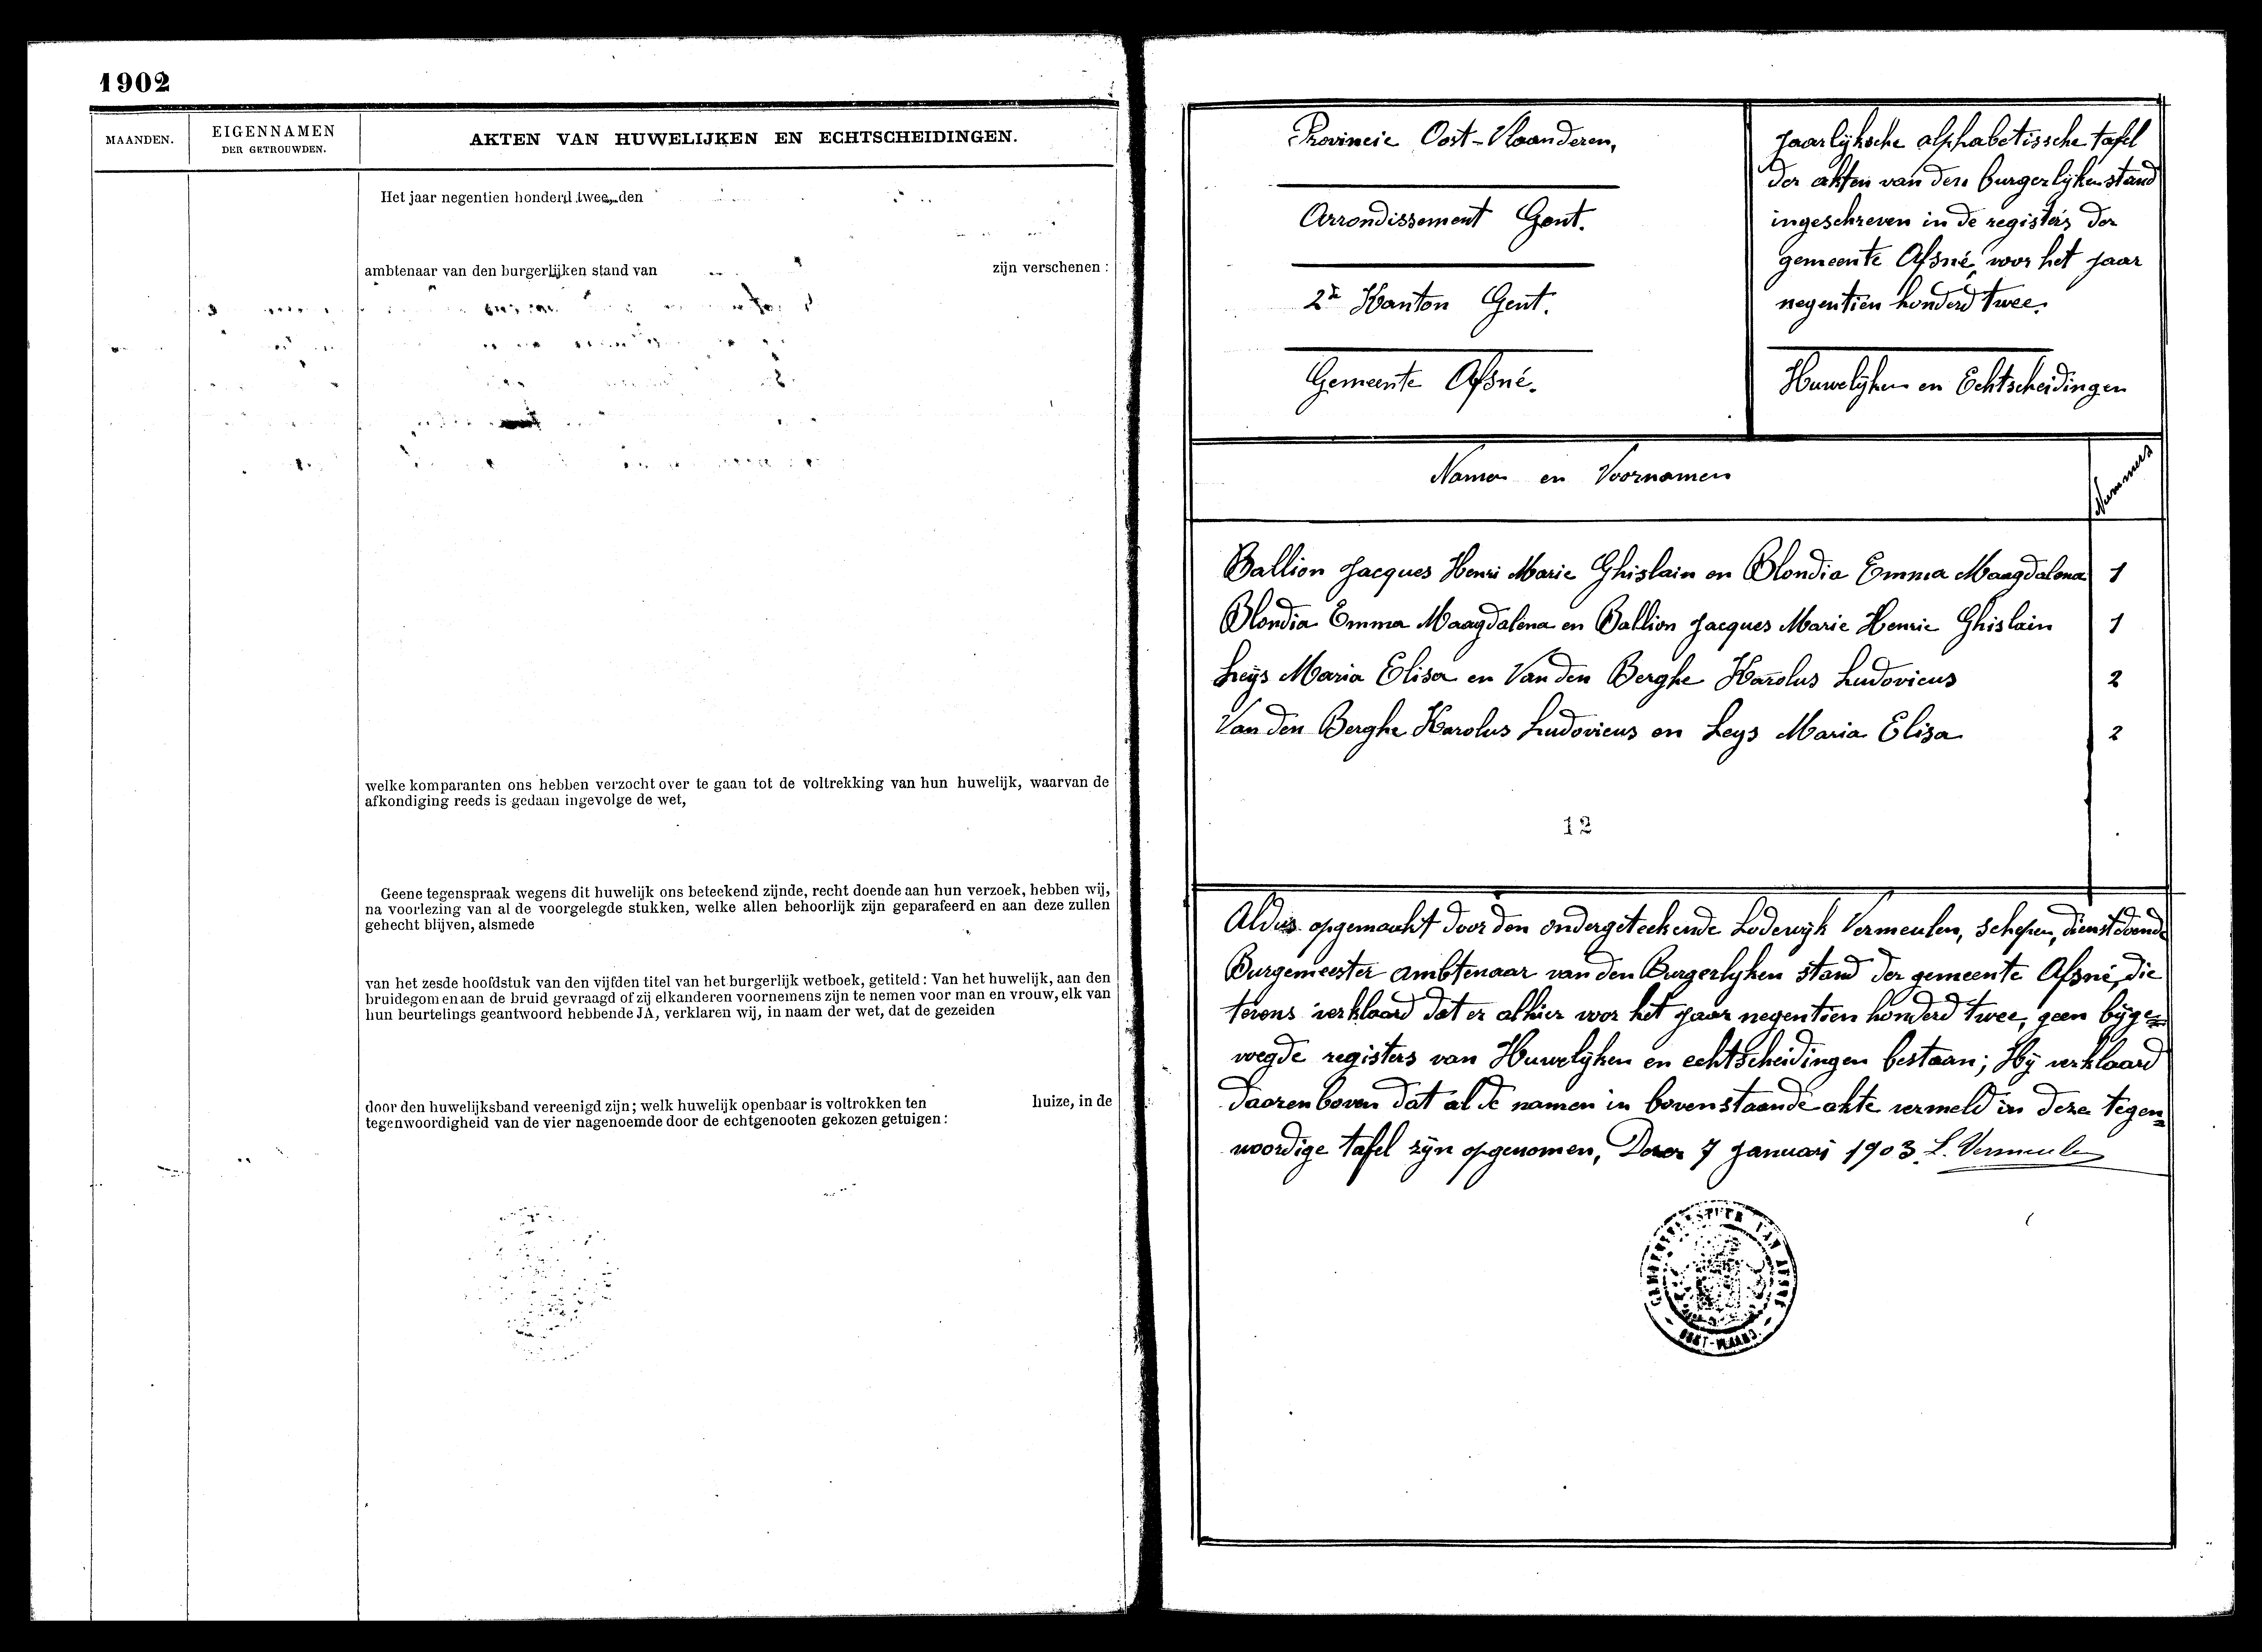 1902
MAANDEN.
EIGENNAMEN
DER GETROUWDEN.
AKTEN VAN HUWELIJKEN EN ECHTSCHEIDINGEN.
Het jaar negentien honderd twee, den
ambtenaar van den burgerlijken stand van zijn verschenen :
welke komparanten ons hebben verzocht over te gaan tot de voltrekking van hun huwelijk, waarvan de
afkondiging reeds is gedaan ingevolge de wet,
Geene tegenspraak wegens dit huwelijk ons beteekend zijnde, recht doende aan hun verzoek, hebben wij,
na voorlezing van al de voorgelegde stukken, welke allen behoorlijk zijn geparafeerd en aan deze zullen
gehecht blijven, alsmede
van het zesde hoofdstuk van den vijfden titel van het burgerlijk wetboek, getiteld : Van het huwelijk, aan den
bruidegom en aan de bruid gevraagd of zij elkanderen voornemens zijn te nemen voor man en vrouw, elk van
hun beurtelings geantwoord hebbende JA, verklaren wij, in naam der wet, dat de gezeiden
door den huwelijksband vereenigd zijn; welk huwelijk openbaar is voltrokken ten huize, in de
tegenwoordigheid van de vier nagenoemde door de echtgenooten gekozen getuigen :
Provincie Oost-Vlaanderen,
Arrondissement Gent.
2de Kanton Gent.
Gemeente Afsné.
Jaarlijksche alphabetissche tafel
der akten van den burgerlijken stand
ingeschreven in de registers der
gemeente Afsné, voor het jaar
negentien honderd twee.
Huwelijken en Echtscheidingen
Namen en Voornamen
Nummers
Ballion Jacques Henri Marie Ghislain en Blondia Emma Maagdalena 1
Blondia Emma Maagdalena en Ballion Jacques Marie Henrie Ghislain 1
Leys Maria Elisa en Van den Berghe Karolus Ludovicus 2
Van den Berghe Karolus Ludovicus en Leys Maria Elisa 2
12
Aldus opgemaakt door den ondergeteekende Lodewijk Vermeulen, schepen, dienstdoende
Burgemeester ambtenaar van den Burgerlyken stand der gemeente Afsné, die
tevens verklaard dat er alhier voor het jaar negentien honderd twee, geen bijge=
voegde registers van Huwelijken en echtscheidingen bestaan; Hij verklaard
daarenboven dat al de namen in bovenstaande akte vermeld in deze tegen=
woordige tafel zijn opgenomen, 7 Januari 1903. L. Vermeulen
GEMEENTEBESTUUR VAN AFSNÉ
OOST-VLAAND.